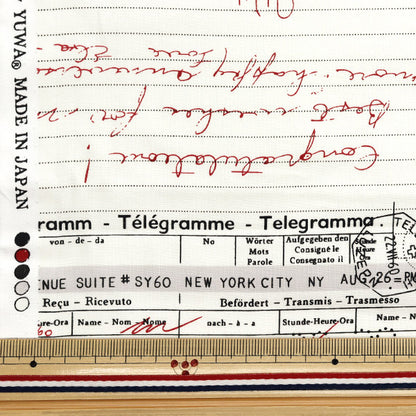 YUWA® MADE IN JAPAN
Love Elsa
more happy anniversa
Best wishes for
Congratulations!
ramm - Télégramme - Telegramma.
von - de - da
No
Wörter
Mots
Parole
Aufgegeben den
Consigné le
Consegnato il
Stunde
Heure
Ora
NUE SUITE # SY60 NEW YORK CITY NY AUG 26
Reçu - Ricevuto
Befördert - Transmis - Trasmesso
re-Ora
Name - Nom - Nome
nach - à - a
Stunde-Heure-Ora
Name - Nom